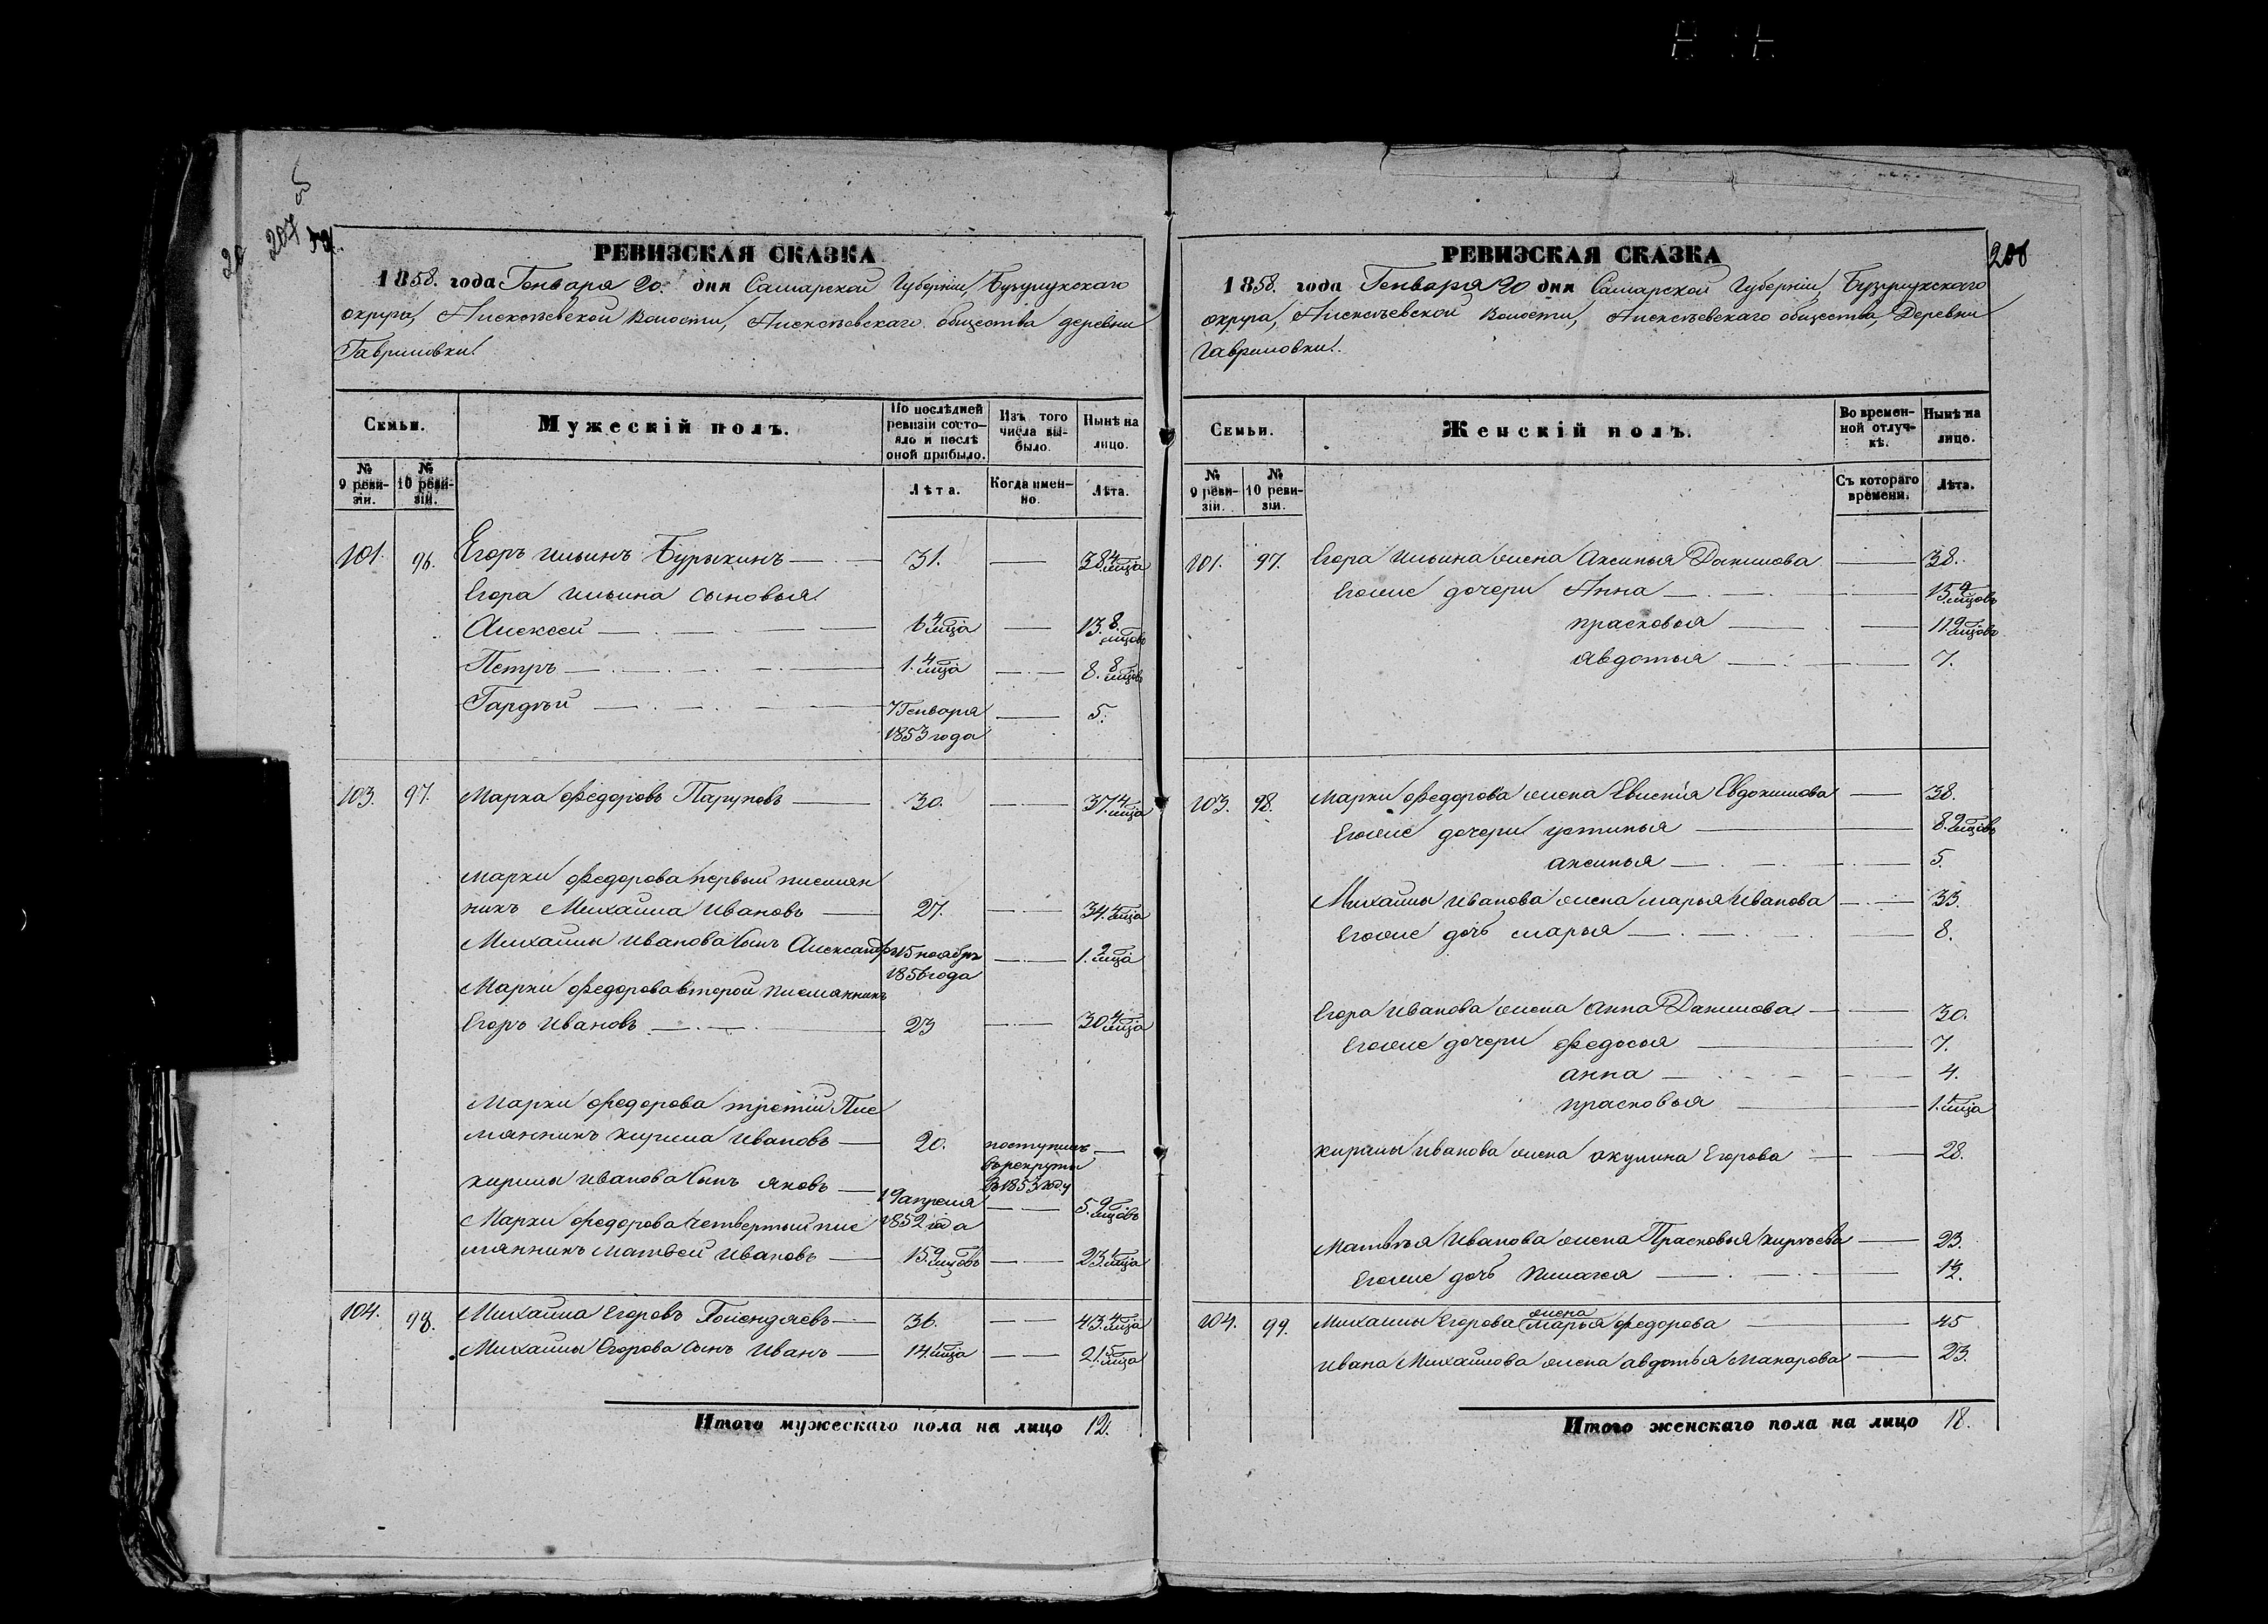 207
РЕВИЗСКАЯ СКАЗКА
1858. года Генваря 20. дня Самарской Губерніи, Бузулукскаго
округа, Алексѣевской Волости, Алексѣевскаго общества деревни
Гавриловки.
Семьи.
Мужескій полъ.
По послѣдней ревизіи состояло и послѣ оной прибыло.
Изъ того числа выбыло.
Нынѣ на лицо.
№ 9 ревизіи.
№ 10 ревизіи.
Лѣта.
Когда именно.
Лѣта.
101. 96. Егоръ Ильинъ Бурыкинъ 31. 38. 4 мца
Егора Ильина сыновья
Алексей 6 4 мца 13. 8. мцовъ
Петръ 1. 4 мца 8. 8 мцовъ
Гардѣй 7 Генваря 5.
1853 года
103. 97. Марка Федоровъ Паруновъ 30. 37 4 мца
Марки Федорова первый племян
никъ Михайла Ивановъ 27. 34. 4 мца
Михайлы Иванова сынъ Александръ 15 ноября 1. 2 мца
1856 года
Марки Федорова второй племянникъ
Егоръ Ивановъ 23 30 4 мца
Марки Федорова третій Пле
мянникъ Кирила Ивановъ 20. поступилъ
въ рекруты
въ 1853 году
Кирилы Иванова сынъ Яковъ 19 апреля 5. 9 мцовъ
1852 года
Марки Федорова четвертый пле
мянникъ Матвей Ивановъ 15. 9 мцовъ 23. 1 мца
104. 98. Михайла Егоровъ Полендяевъ 36. 43. 4 мца
Михайлы Егорова сынъ Иванъ 14. 1 мца 21. 5 мца
Итого мужескаго пола на лицо 12.
208
РЕВИЗСКАЯ СКАЗКА
1858. года Генваря 20 дня Самарской Губерніи, Бузулукскаго
округа, Алексѣевской Волости, Алексѣевскаго общества, Деревни
Гавриловки.
Семьи.
Женскій полъ.
Во временной отлучкѣ.
Нынѣ на лицо.
№ 9 ревизіи.
№ 10 ревизіи.
Съ котораго времени.
Лѣта.
101. 97. Егора Ильина жена Аксинья Данилова 38.
Егожже дочери Анна 15. 9 мцовъ
прасковья 11 9 мцовъ
Авдотья 7.
103. 98. Марки Федорова жена Евгенія Евдокимова 38.
Егоже дочери устинья 8. 9 мцовъ
аксинья 5.
Михайлы Иванова жена марья Иванова 33.
Егоже дочь марья 8.
Егора Иванова жена Анна Данилова 30.
Егоже дочери Федосья 7.
анна 4.
прасковья 1. 1 мца
Кирилы Иванова жена акулина Егорова 28.
Матвѣя Иванова жена Прасковья Киреѣва 23.
Егоже дочь Пилагея 1/2.
104. 99. Михайлы Егорова жена марья Федорова 45
Ивана Михайлова жена авдотья Макарова 23.
Итого женскаго пола на лицо 18.